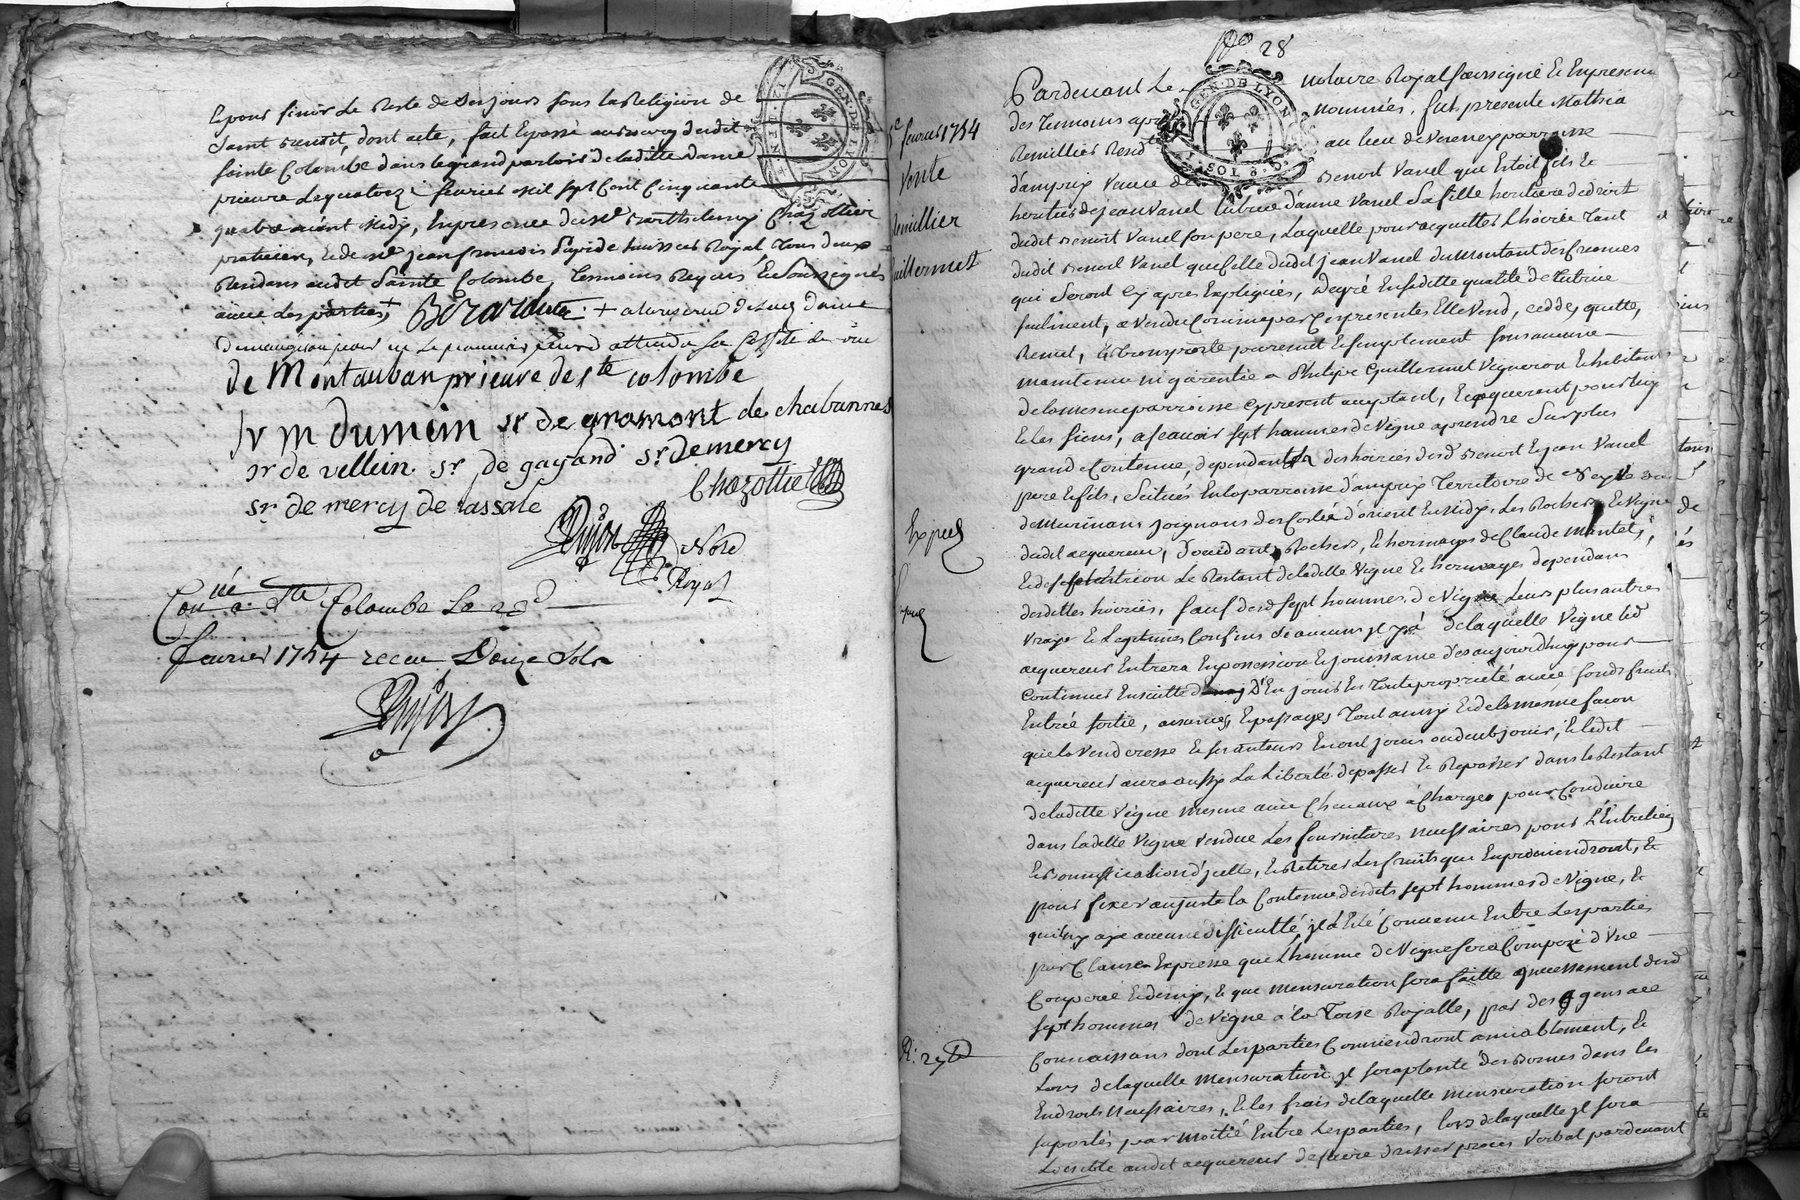 Et pour finir Le Reste de Ses jours sous la Religion de
Saint Benoit, dont acte, fait Et passé au bourg dudit
Sainte Colombe dans le grand parloir de laditte Dame
prieure Le quatorze fevrier mil sept Cent Cinquante
quatre avant Midy, En presence de sr Barthelemy Chazottier
praticien, Et de sr jean francois huissier Royal Tous deux
Residans audit Sainte Colombe Temoins Requis Et Soussignés
avec Les parties +
de Montauban prieure de ste colombe
sr m dumein sr de gramont de chabannes
sr de vellein sr de gayand sr De mercy
sr de mercy de lassale Chazottier
Dujon Nore
Royal
Con.lé a Ste Colombe Le 23d
fevrier 1754 receu Douze Sols
Dujon
GEN. DE LYON
No 28
GEN. DE LYON
2 SOLS
Pardevant Le notaire Royal soussigné Et En presence
des Temoins apres nommés, fut presente Mathia
Remillier Resid au lieu de Vereney parroisse
d'ampuy veuve de Benoit Vanel qui Etoit fils Et
heritier de jean Vanel tutrice d'anne Vanel Sa fille heritiere de droit
dudit Benoit Vanel son pere, Laquelle pour acquitter L'hoirie Tant
dudit Benoit Vanel que celle dudit jean Vanel du Montant des sommes
qui Seront Cy apres Expliquées, a degré En saditte qualité de Tutrice
seulment, a Vendu Comme par Ces presentes Elle Vend, cedde, quitte,
Remet, Et transporte purement Et simplement sans aucune
maintenue ni garentie a Philipe Guillermet Vigneron Et habitant
de la mesme parroisse cy present acceptant, Et acquerant pour luy
Et les siens, a scavoir sept hommes de Vigne a prendre Sur plus
grande Contenue, dependant des hoiries desd Benoit Et jean Vanel
pere Et fils, Scitués En la parroisse d'ampuy Territoire de
de Murinans joignans des Costés d'orient Et Midy, Les Rochers Et Vigne
dudit acquereur, d'occidant Rochers, Et hermages de Claude Montet,
Et de septentrion Le Restant de laditte Vigne Et hermages dependans
desdittes hoiries, sauf desd sept hommes de Vigne Leurs plus autres
Vrays Et Legitimes Confins Si aucuns jl y a de laquelle Vigne led
acquereur Entrera En possession Et jouissance des aujourdhuy pour
Continuer Ensuitte D'En jouir En Toute proprieté avec fonds fruits
Entrée sortie, aisances, Et passages Tout ainsy Et de la même facon
que la Venderesse Et ses auteurs En ont joui ou deub jouir, Et ledit
acquereur aura aussy La Liberté de passer Et Repasser dans le Restant
de laditte Vigne mesme avec Chevaux a Charge pour Conduire
dans laditte Vigne Vendue Les fournitures necessaires pour L'Entretien
Et Bonnification d'jcelle, Et Retirer Les fruits qui En proviendront, Et
pour fixer au juste la Contenue desdits sept hommes de Vigne, Et
qu'il ny aye aucune difficulté jl a Eté Convenu Entre Les parties
par Clause Expresse que L'homme de Vigne sera Composé d'Une
Couperée Et demy, Et que mensuration sera faitte jncessement desd
sept hommes de Vigne à la Toise Royalle, par des gens a ce
Connoissans dont Les parties Conviendront amiablement, Et
Lors de laquelle Mensuration jl sera planté Des Bornes dans les
Endroits Necessaires, Et les frais de laquelle mensuration seront
suportés par Moitié Entre Les parties, lors de laquelle jl sera
Loisible audit acquereur de faire dresser proces Verbal pardevant
fevrier 1754
Vente
Remillier
Guillermet
Exped